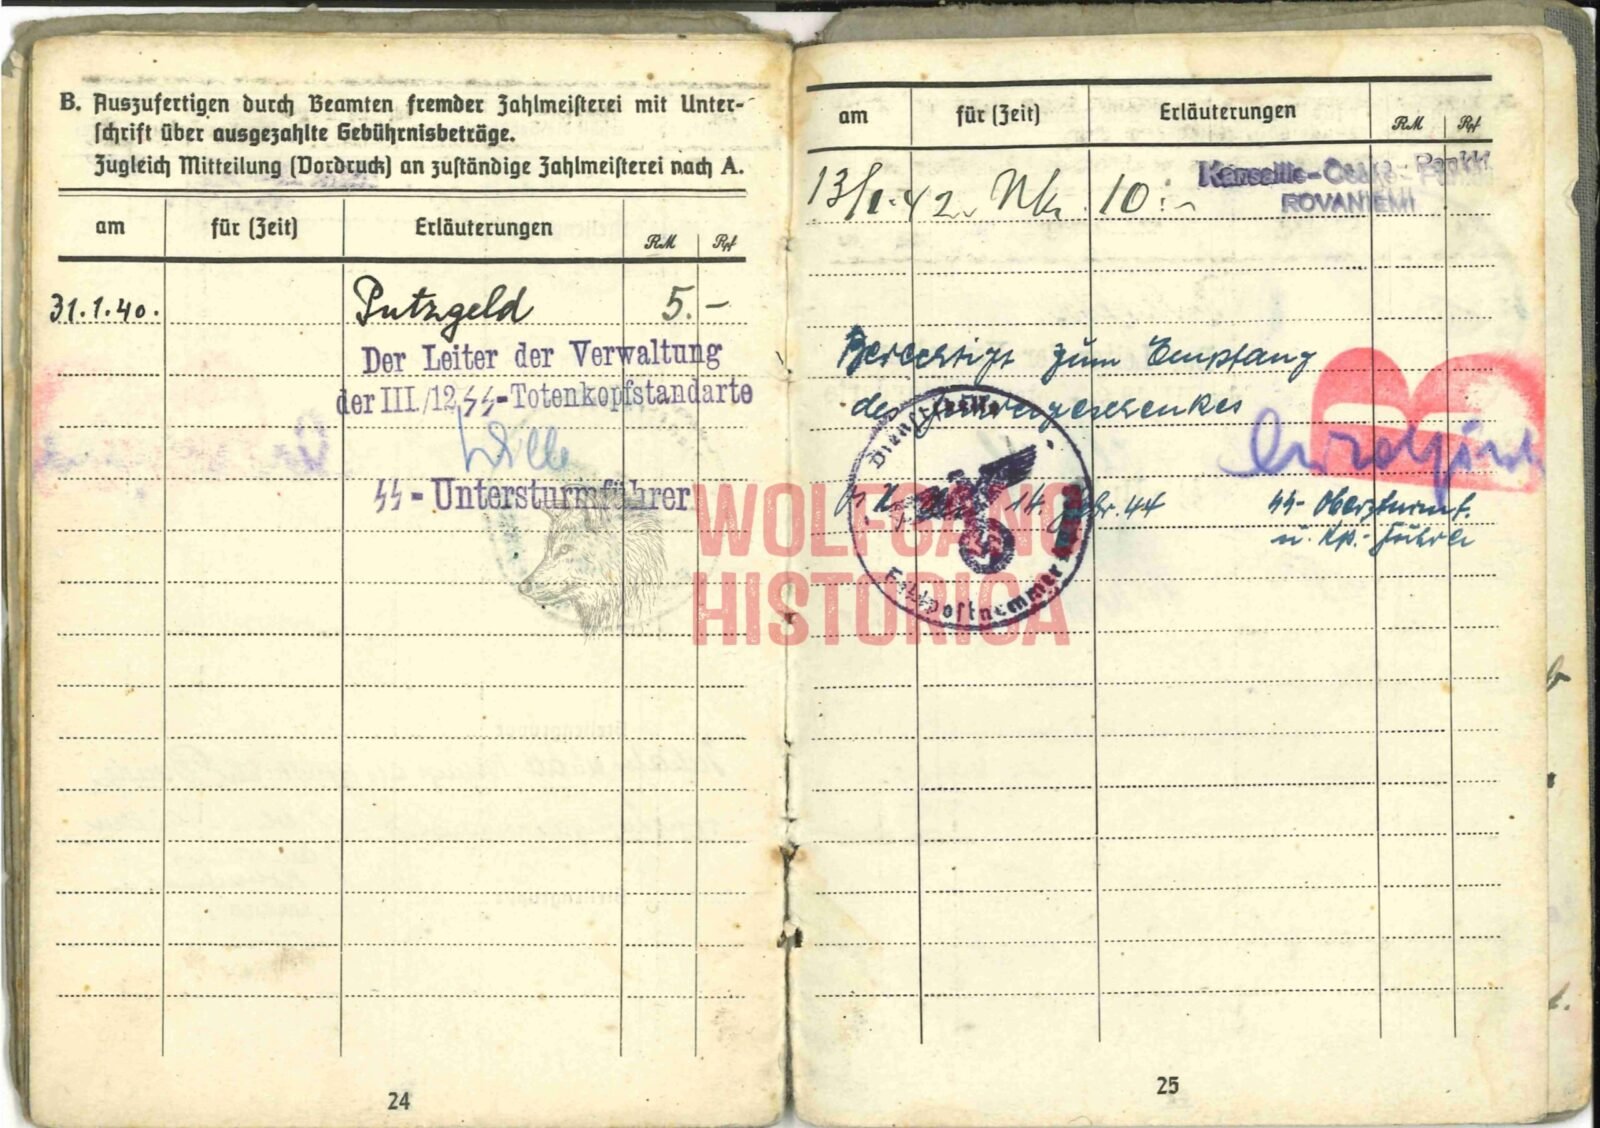 B. Auszufertigen durch Beamten fremder Zahlmeisterei mit Unter-
schrift über ausgezahlte Gebührnisbeträge.
Zugleich Mitteilung (Vordruck) an zuständige Zahlmeisterei nach A.
am für (Zeit) Erläuterungen RM Rpf
31.1.40. Putzgeld 5.-
Der Leiter der Verwaltung
der III./12. SS-Totenkopfstandarte
SS-Untersturmführer
24
am für (Zeit) Erläuterungen RM Rpf
13/1.42. Mk. 10:-
Kansallis-Osake-Pankki
ROVANIEMI
Berechtigt zum Empfang
des Führergeschenkes
Dienststelle
Feldpostnummer
14. Febr. 44
SS-Obersturmf.
u. Kp.-Führer
25
WOLFGANG
HISTORICA